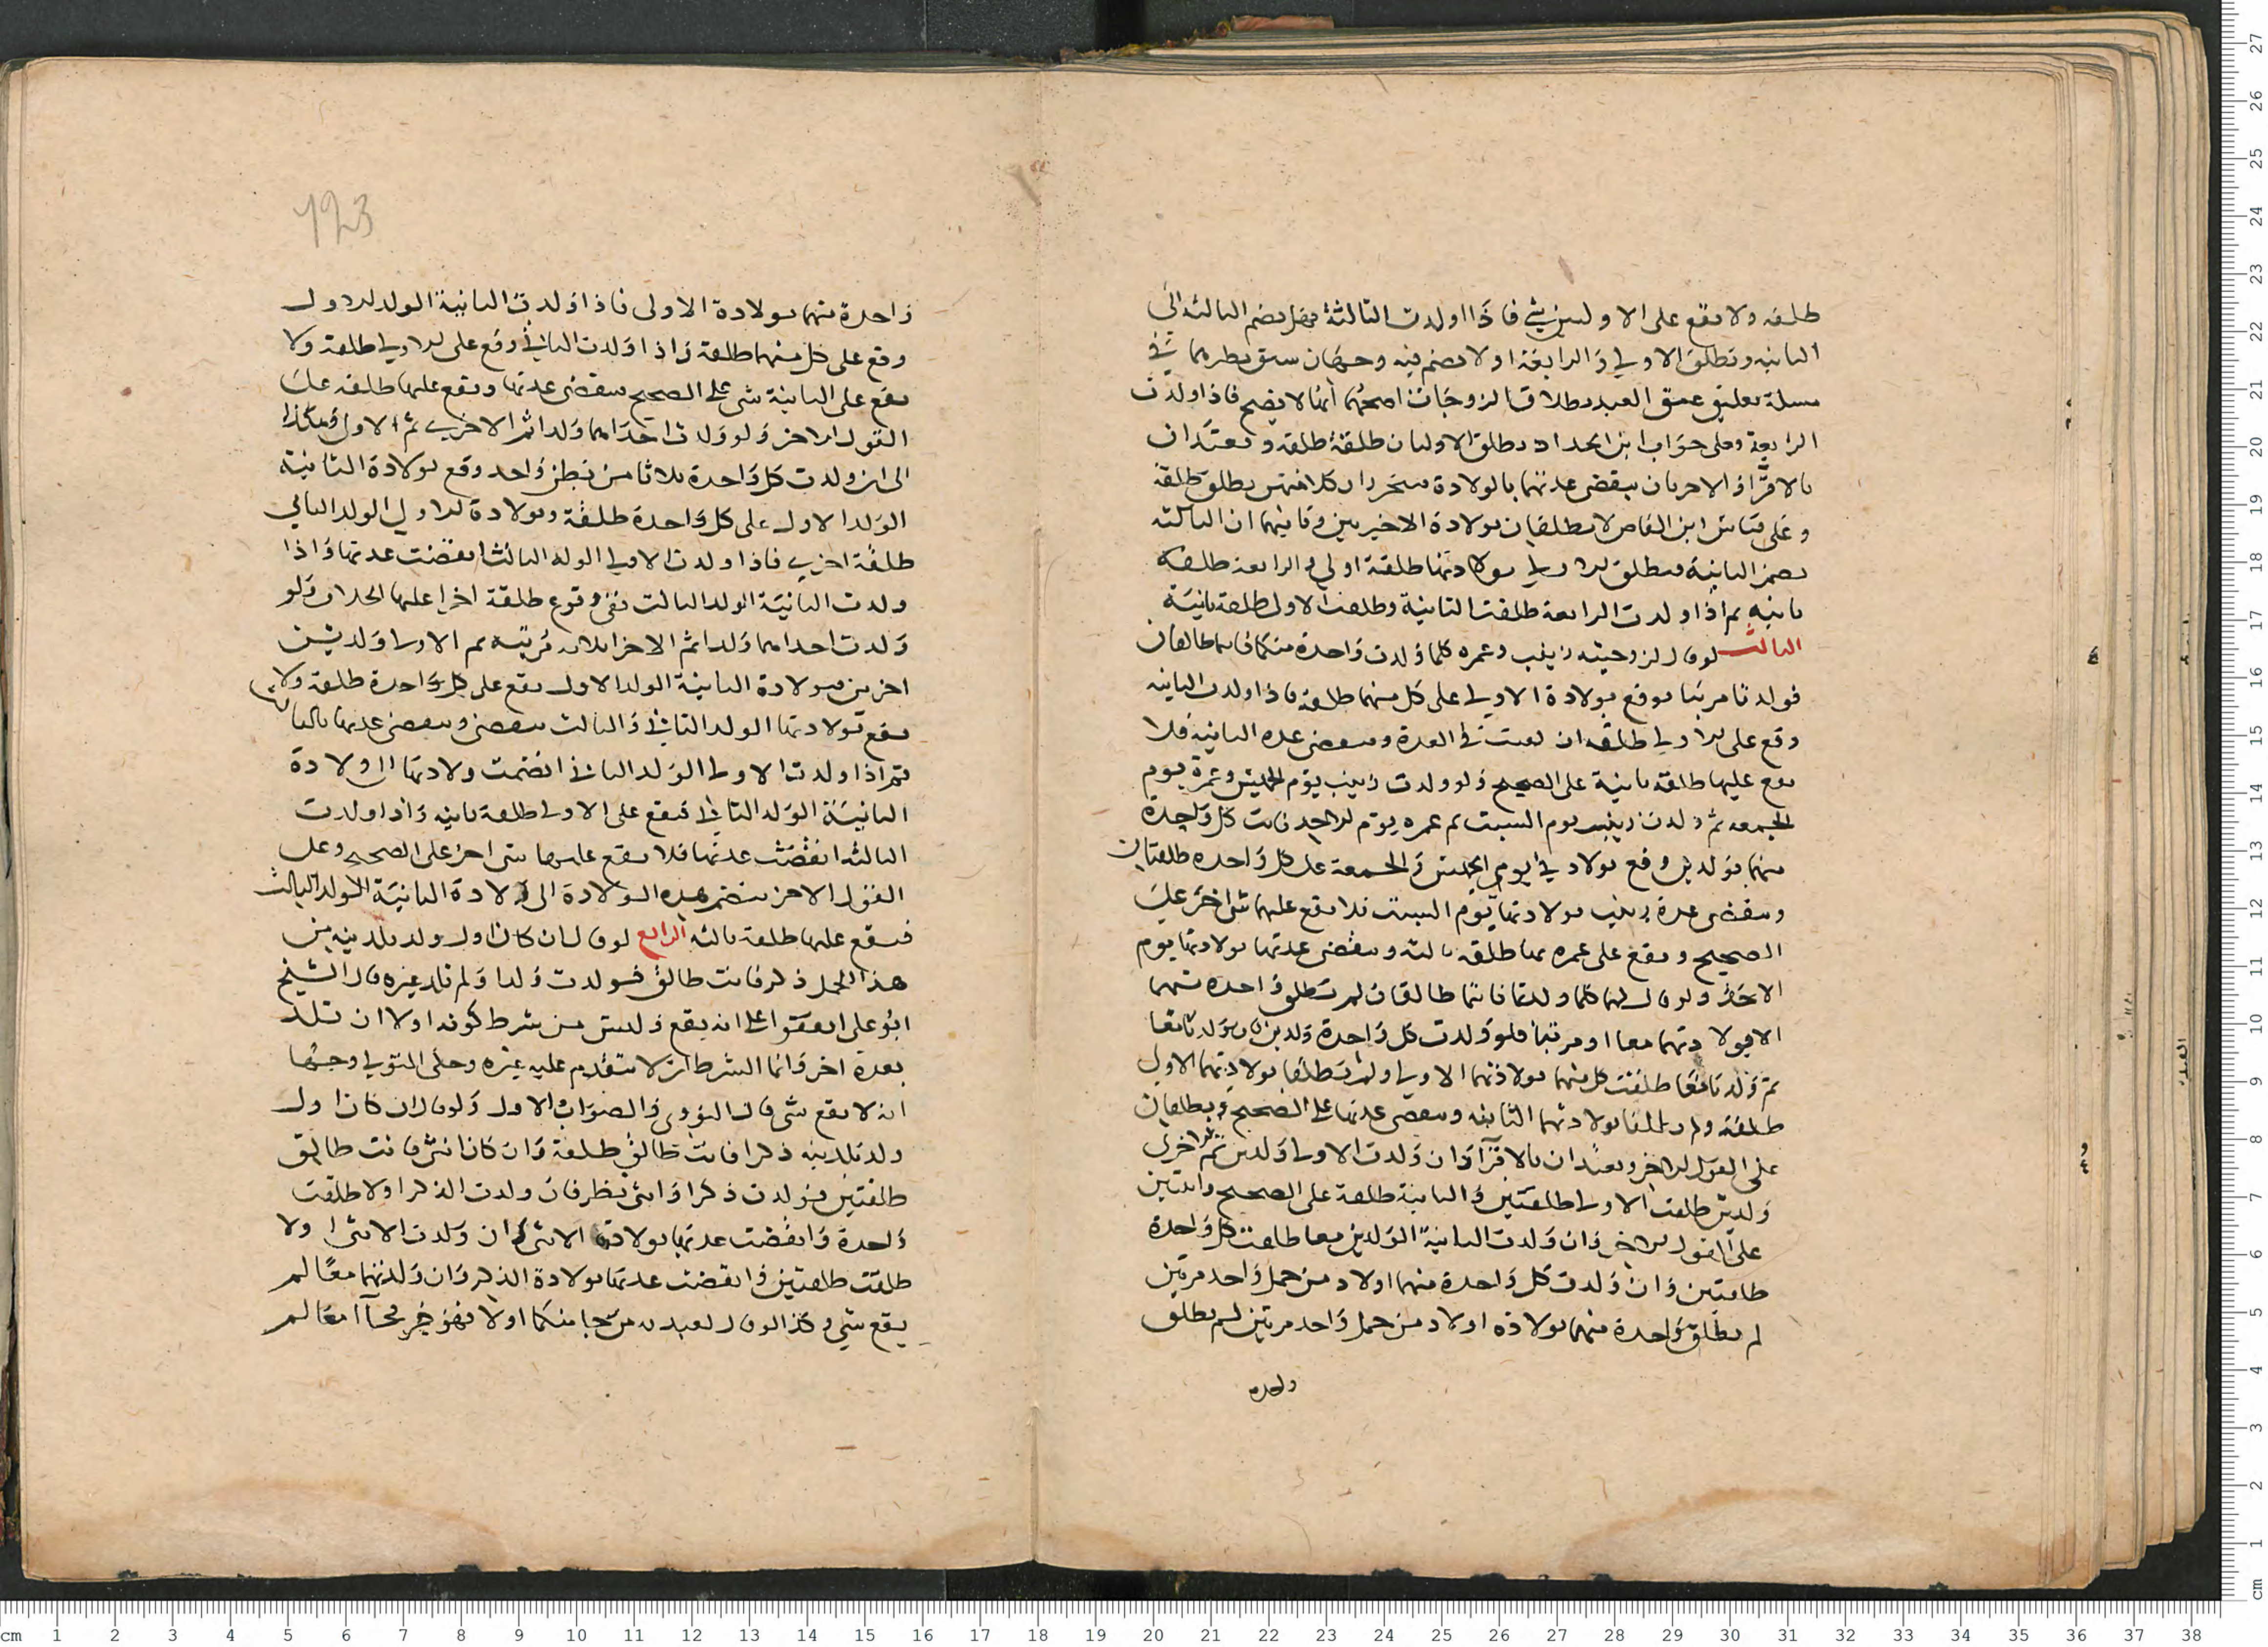 طلقه ولا يقع على الاوليين شي فاذا اولدت الثالثة فهل يضم الثالثه الى
الثانيه وتطلق الاولى والرابعة اولا يضم فيه وجهان سبق نظيرهما في
مسلة تعليق عتق العبد بطلاق الزوجات اصحهما انها لا يضم فاذا ولدت
الرابعة وعلى جواب ابن الحداد يطلق الاوليان طلقة طلقه وتعتدان
بالاقراء والاخريان ينقضى عدتهما بالولادة
وعلى قياس ابن القاص لا يطلقان بولادة الاخيرتين وقا ان الثالثه
يضم الثانية فيطلق الاولى بولادتها طلقة اولى والرابعة طلقه
ثانيه ثم اذا ولدت الرابعة طلقت الثانية وطلقت الاولى طلقة ثانية
الثالث لوقال لزوجيته زينب وعمره كلما ولدت واحدة منكما فانتما طالقان
فولدتا مرتبا يوقع بولادة الاولى على كل منهما طلقة فاذا ولدت الثانيه
وقع على الاولى طلقه ان بقيت في العدة وينقضى عده الثانيه فلا
يقع عليها طلقة ثانية على الصحيح ولو ولدت زينب يوم الخميس وعمرة يوم
الجمعه ثم ولدت زينب يوم السبت ثم عمره يوم الاحد فاتت كل واحدة
منهما بولدين وقع بولاد في يومى الخميس والجمعة على كل واحده طلقتان
وينقضى عدة زينب بولادتها يوم السبت فلا يقع عليها شى اخر على
الصحيح ويقع على عمره بها طلقة ثالثه وينقضى عدتها بولادتها يوم
الاحد ولوقال لهما كلما ولدتما فانتما طالقان لم تطلق واحده منهما
الا بولادتهما معا او مرتبا فلو ولدت كل واحدة ولدين
ثم ولدتا معا طلقت كل منهما بولادتهما الاولى ولم تطلقا بولادتهما الاولى
طلقة ولم يطلقا بولادتهما الثانيه وينقضى عدتهما على الصحيح ويطلقان
على القول الاخر ويعتدان بالاقراء وان ولدت الاولى ولدين ثم الاخرى
ولدين طلقت الاولى طلقتين والثانية طلقة على الصحيح واثنتين
على القول الاخر وان ولدت الثانية الولدين معا طلقت كل واحدة
طلقتين وان ولدت كل واحدة منهما اولاد من حمل واحد مرتين
لم يطلق واحدة منهما بولادة اولاد من حمل واحد مرتين لم يطلق
واحده
123
واحدة منهما بولادة الاولى فاذا ولدت الثانية الولد الاول
وقع على كل منهما طلقة واذا ولدت الثاني وقع على الاولى طلقة ولا
يقع على الثانية شى على الصحيح ينقضى عدتها ويقع عليها طلقه على
القول الاخر ولو ولدت احداهما ولدا ثم الاخرى ثم الاولى وهكذا
الى ان ولدت كل واحدة ثلاثا من بطن واحد وقع بولادة الثانية
الولد الاول على كل واحدة طلقة وبولادة الاولى الولد الثاني
طلقة اخرى فاذا ولدت الاولى الولد الثالث انقضت عدتها واذا
ولدت الثانية الولد الثالث ففى وقوع طلقة اخرا عليها الخلاف ولو
ولدت احداهما ولدا ثم الاخرا ثلاثه مرتبه ثم الاولى ولدين
اخرين فبولادة الثانية الولد الاول يقع على كل واحدة طلقة ولا
يقع بولادتها الولد الثانى والثالث شى وينقضى عدتها بالثالث
ثم اذا ولدت الاولى الولد الثانى انضمت ولادتها الى ولادة
الثانية الولد الثاني فيقع على الاولى طلقة ثانيه واذا ولدت
الثالث انقضت عدتها فلا يقع عليها شى اخر على الصحيح وعلى
القول الاخر ينضم هذه الولادة الى ولادة الثانية الولد الثالث
فيقع عليها طلقة ثالثه الرابع لوقال ان كان اول ولد تلدينه من
هذا الحمل ذكر فانت طالق فولدت ولدا ولم تلد غيره قال الشيخ
ابو على اتفقوا على انه يقع وليس من شرط كونه اولا ان تلد
بعده اخر وانما الشرط ان لا يتقدم عليه غيره وحكى المتولي وجها
انه لا يقع شى قال النووى والصواب الاول ولوقال ان كان اول
ولد تلدينه ذكرا فانت طالق طلقة وان كان انثى فانت طالق
طلقتين فولدت ذكرا وانثى نظر فان ولدت الذكر اولا طلقت
واحدة وانقضت عدتها بولادتها الانثى وان ولدت الانثى اولا
طلقت طلقتين وانقضت عدتها بولادة الذكر وان ولدتهما معا لم
يقع شي وكذا لو قال لعبديه من جا منكما اولا فهو حر فجاا معا لم